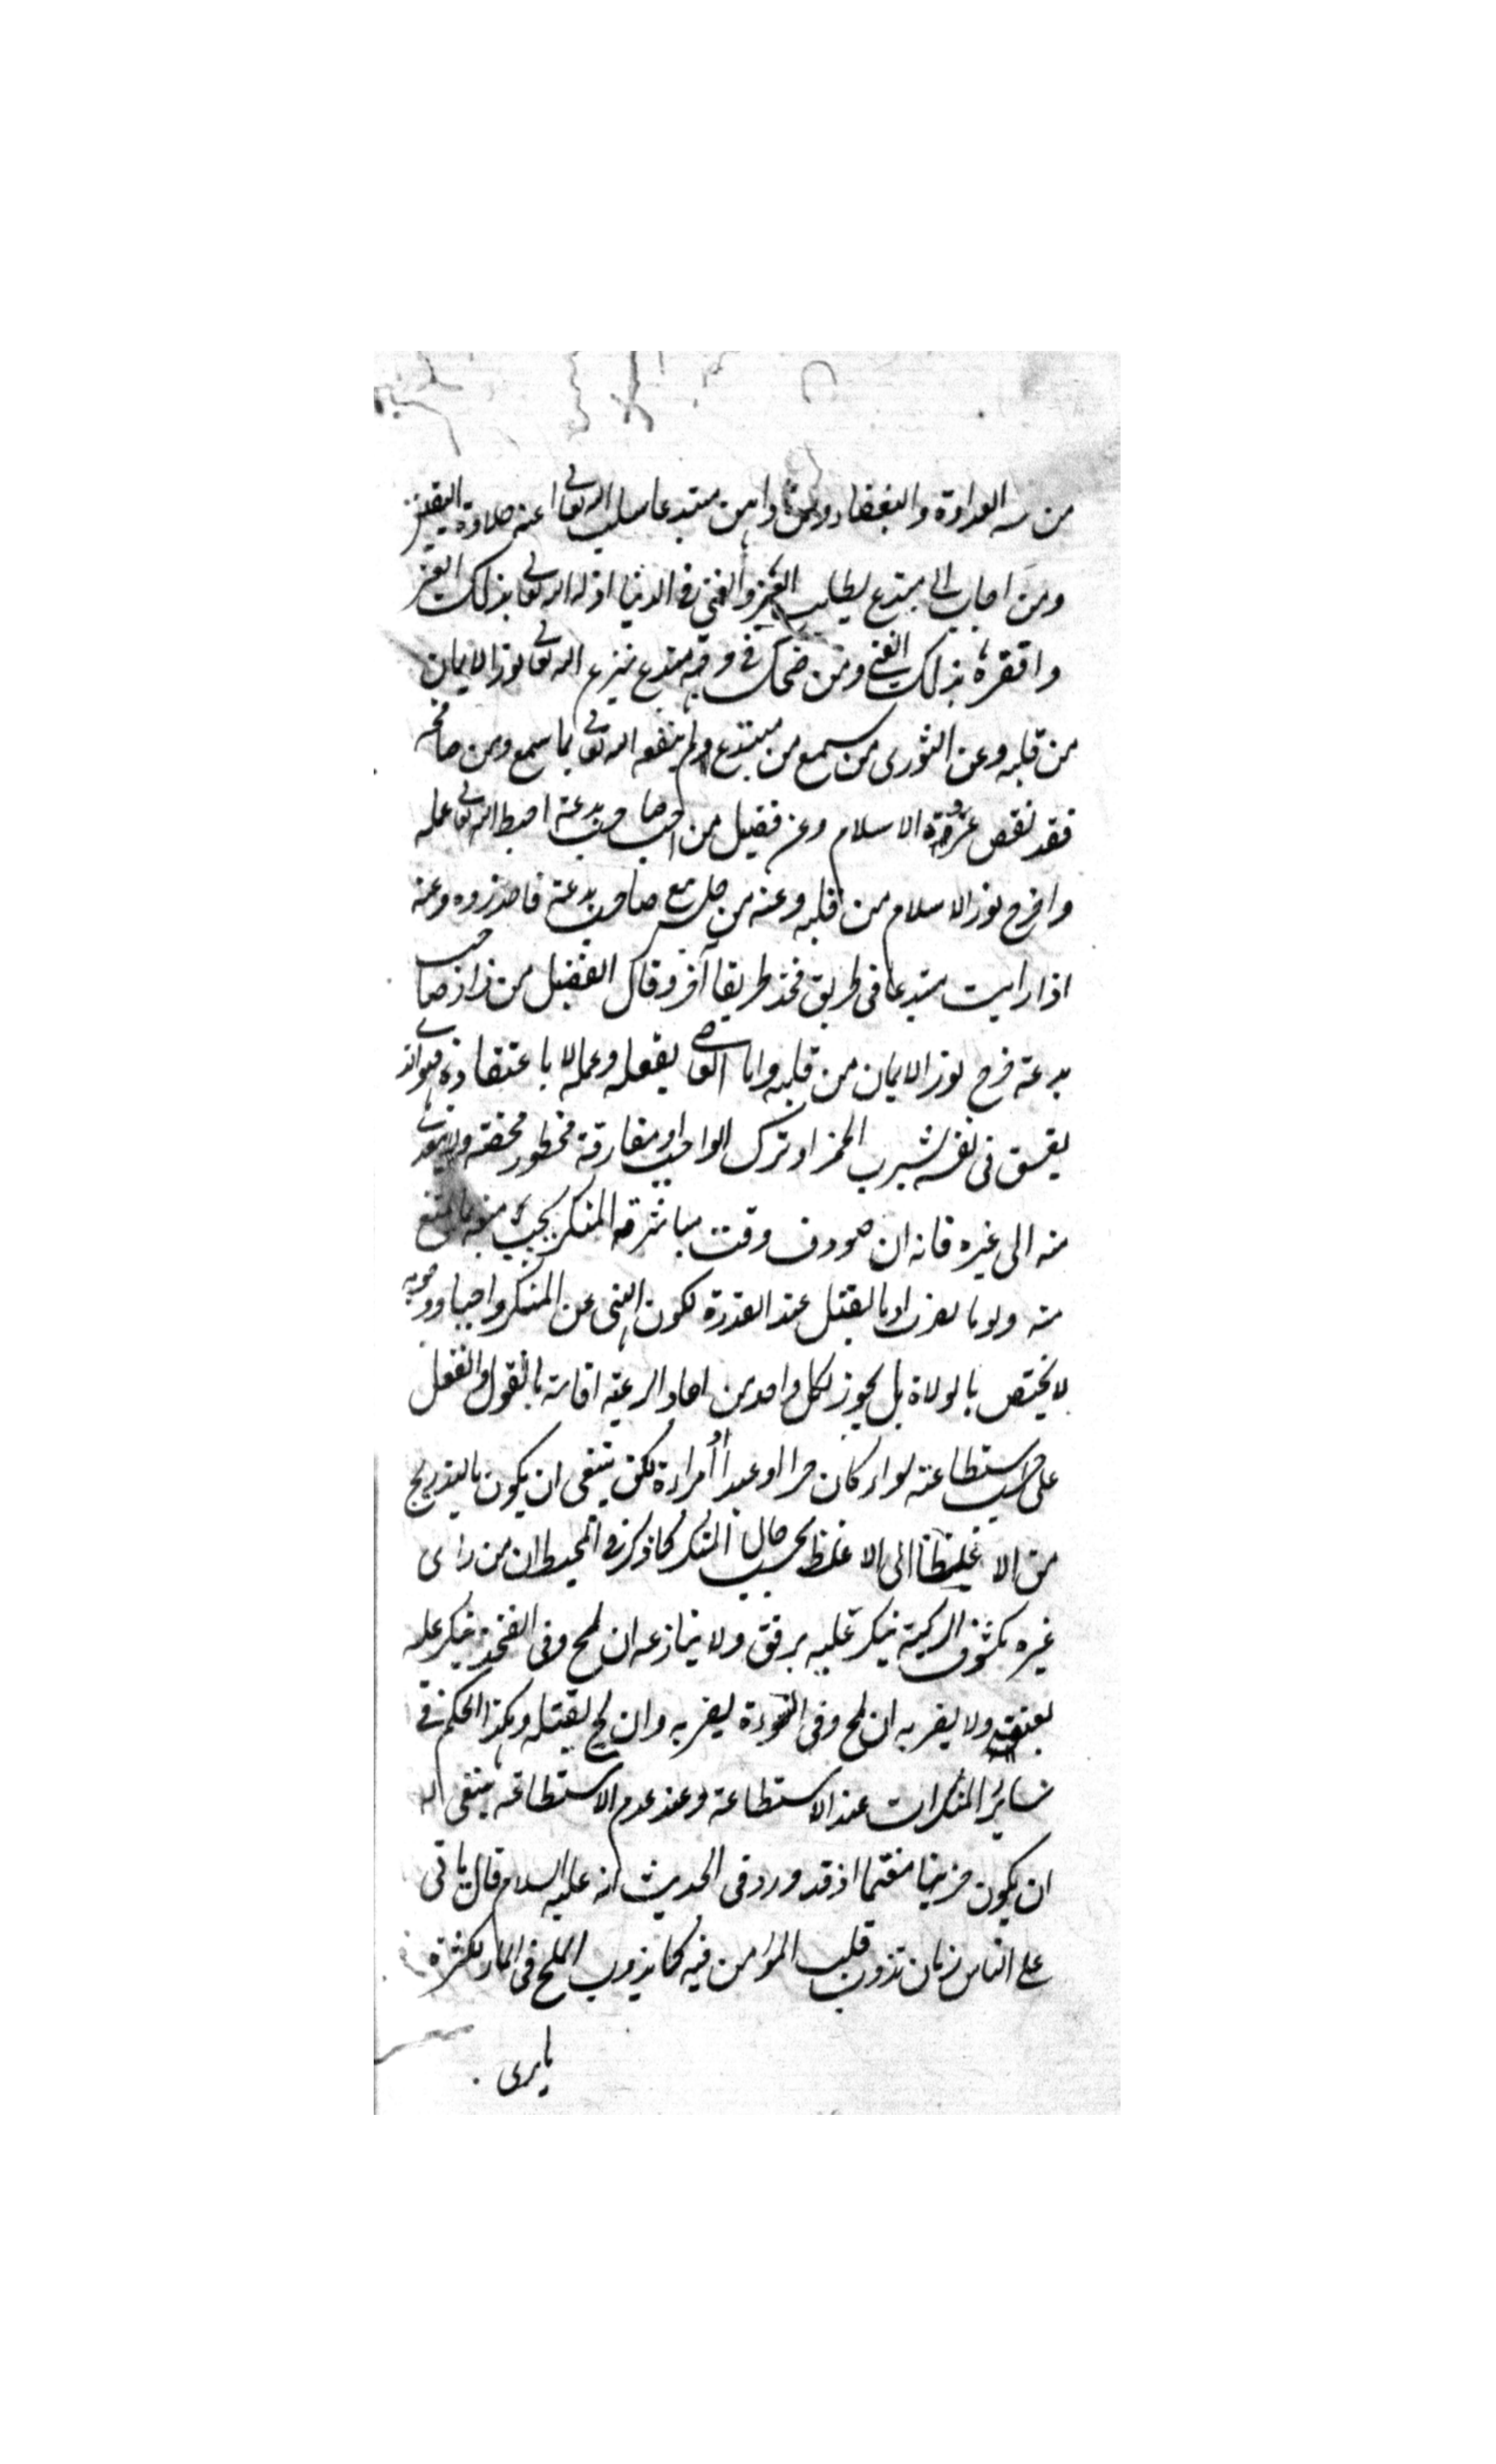 من سه العداوة والبغضاء ومن داهن مبتدعا سلب الله تعالى عنه حلاوة اليقين
ومن اجاب الى مبتدع لطلب العز والغنى فى الدنيا اذله الله تعالى بذلك العز
وافقره بذلك الغنى ومن ضحك فى وجه مبتدع ينزع الله تعالى نور الايمان
من قلبه وعن الثورى من سمع من مبتدع ولم ينفعه الله تعالى بما سمع ومن صافحه
فقد نقص عروة الاسلام وعن فضيل من احب صاحب بدعة احبط الله تعالى عمله
واخرج نور الاسلام من قلبه وعنه من جلس مع صاحب بدعة فاحذروه وعنه
اذا رايت مبتدعا فى طريق فخذ طريقا آخر وقال الفضيل من زار صاحب
بدعة خرج نور الايمان من قلبه واما العاصى بفعله وعمله لا باعتقاده فهو الذى
يفسق فى نفسه لشرب الخمر او ترك الواجب او مفارقة محظور محضة ولا يتعدى
منه الى غيره فانه ان صودف وقت مباشرته المنكر يجب منعه بما يمتنع
منه ولو بالضرب او بالقتل عند القدرة لكون النهى عن المنكر واجبا ووجوبه
لا يختص بالولاة بل يجوز لكل واحد من احاد الرعية اقامته بالقول والفعل
على حسب استطاعته سواء كان حرا او عبدا او امراءة لكن ينبغى ان يكون بالتدريج
من الا غليظا الى الا غلظ بحسب حال المنكر كما ذكر فى المحيط ان من راى
غيره مكشوف الركبة ينكر عليه برفق ولا ينازعه ان لج وفى الفخذ ينكر عليه
بعنف ولا يضربه ان لج وفى السوءة يضربه وان لج يقتله وهكذا الحكم فى
سائر المنكرات عند الاستطاعة وعند عدم الاستطاعة ينبغى له
ان يكون حزينا مغتما اذ قد ورد فى الحديث انه عليه السلام قال ياتى
على الناس زمان تذوب قلب المؤمن فيه كما يذوب الملح فى الماء لكثرة
ما يرى